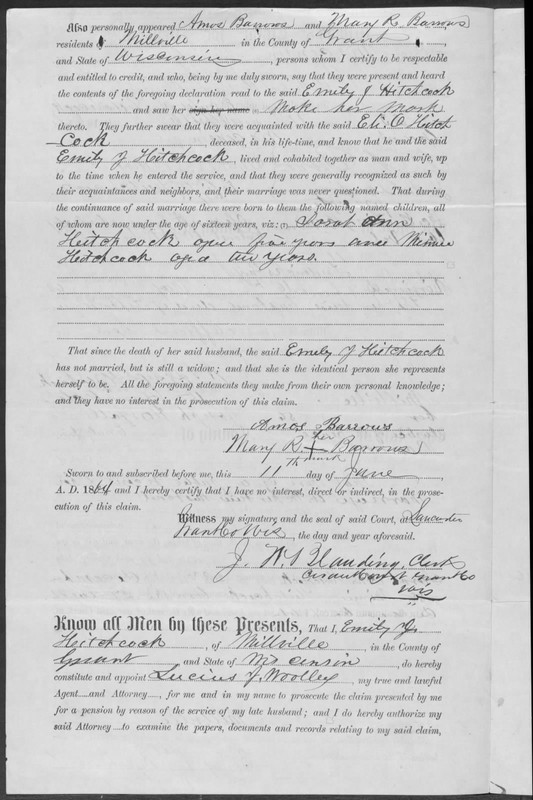 Also personally appeared Amos Barrows and Mary R. Barrows
residents of Millville in the County of Grant
and State of Wisconsin, persons whom I certify to be respectable
and entitled to credit, and who, being by me duly sworn, say that they were present and heard
the contents of the foregoing declaration read to the said Emily J Hitchcock
and saw her sign her name Make her Mark
thereto. They further swear that they were acquainted with the said Eli. O Hitch
cock deceased, in his life-time, and know that he and the said
Emily J Hitchcock, lived and cohabited together as man and wife, up
to the time when he entered the service, and that they were generally recognized as such by
their acquaintances and neighbors, and their marriage was never questioned. That during
the continuance of said marriage there were born to them the following named children, all
of whom are now under the age of sixteen years, viz: (1) Sarah Ann
Hitchcock aged five years and Minnie
Hitchcock aged two years.
That since the death of her said husband, the said Emily J Hitchcock
has not married, but is still a widow; and that she is the identical person she represents
herself to be. All the foregoing statements they make from their own personal knowledge;
and they have no interest in the prosecution of this claim.
Amos Barrows
her
Mary R. + Barrows
mark
Sworn to and subscribed before me, this 11th day of June,
A. D. 1864 and I hereby certify that I have no interest, direct or indirect, in the prose-
cution of this claim.
Witness my signature and the seal of said Court, at Lancaster
Grant Co Wis, the day and year aforesaid.
J. W. Blanding, Clerk
Circuit Court Grant Co
Wis
Know all Men by these Presents, That I, Emily J.
Hitchcock, of Millville, in the County of
Grant and State of Wisconsin, do hereby
constitute and appoint Lucius J. Woolley my true and lawful
Agent and Attorney, for me and in my name to prosecute the claim presented by me
for a pension by reason of the service of my late husband; and I do hereby authorize my
said Attorney to examine the papers, documents and records relating to my said claim,